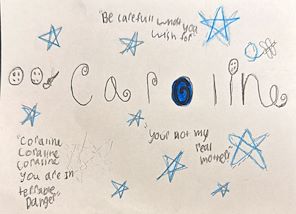 "Be carefull what you
wish for"
Caroline
"Coraline
Coraline
Coraline
you are in
terrable
Danger"
"your not my
real
mother"